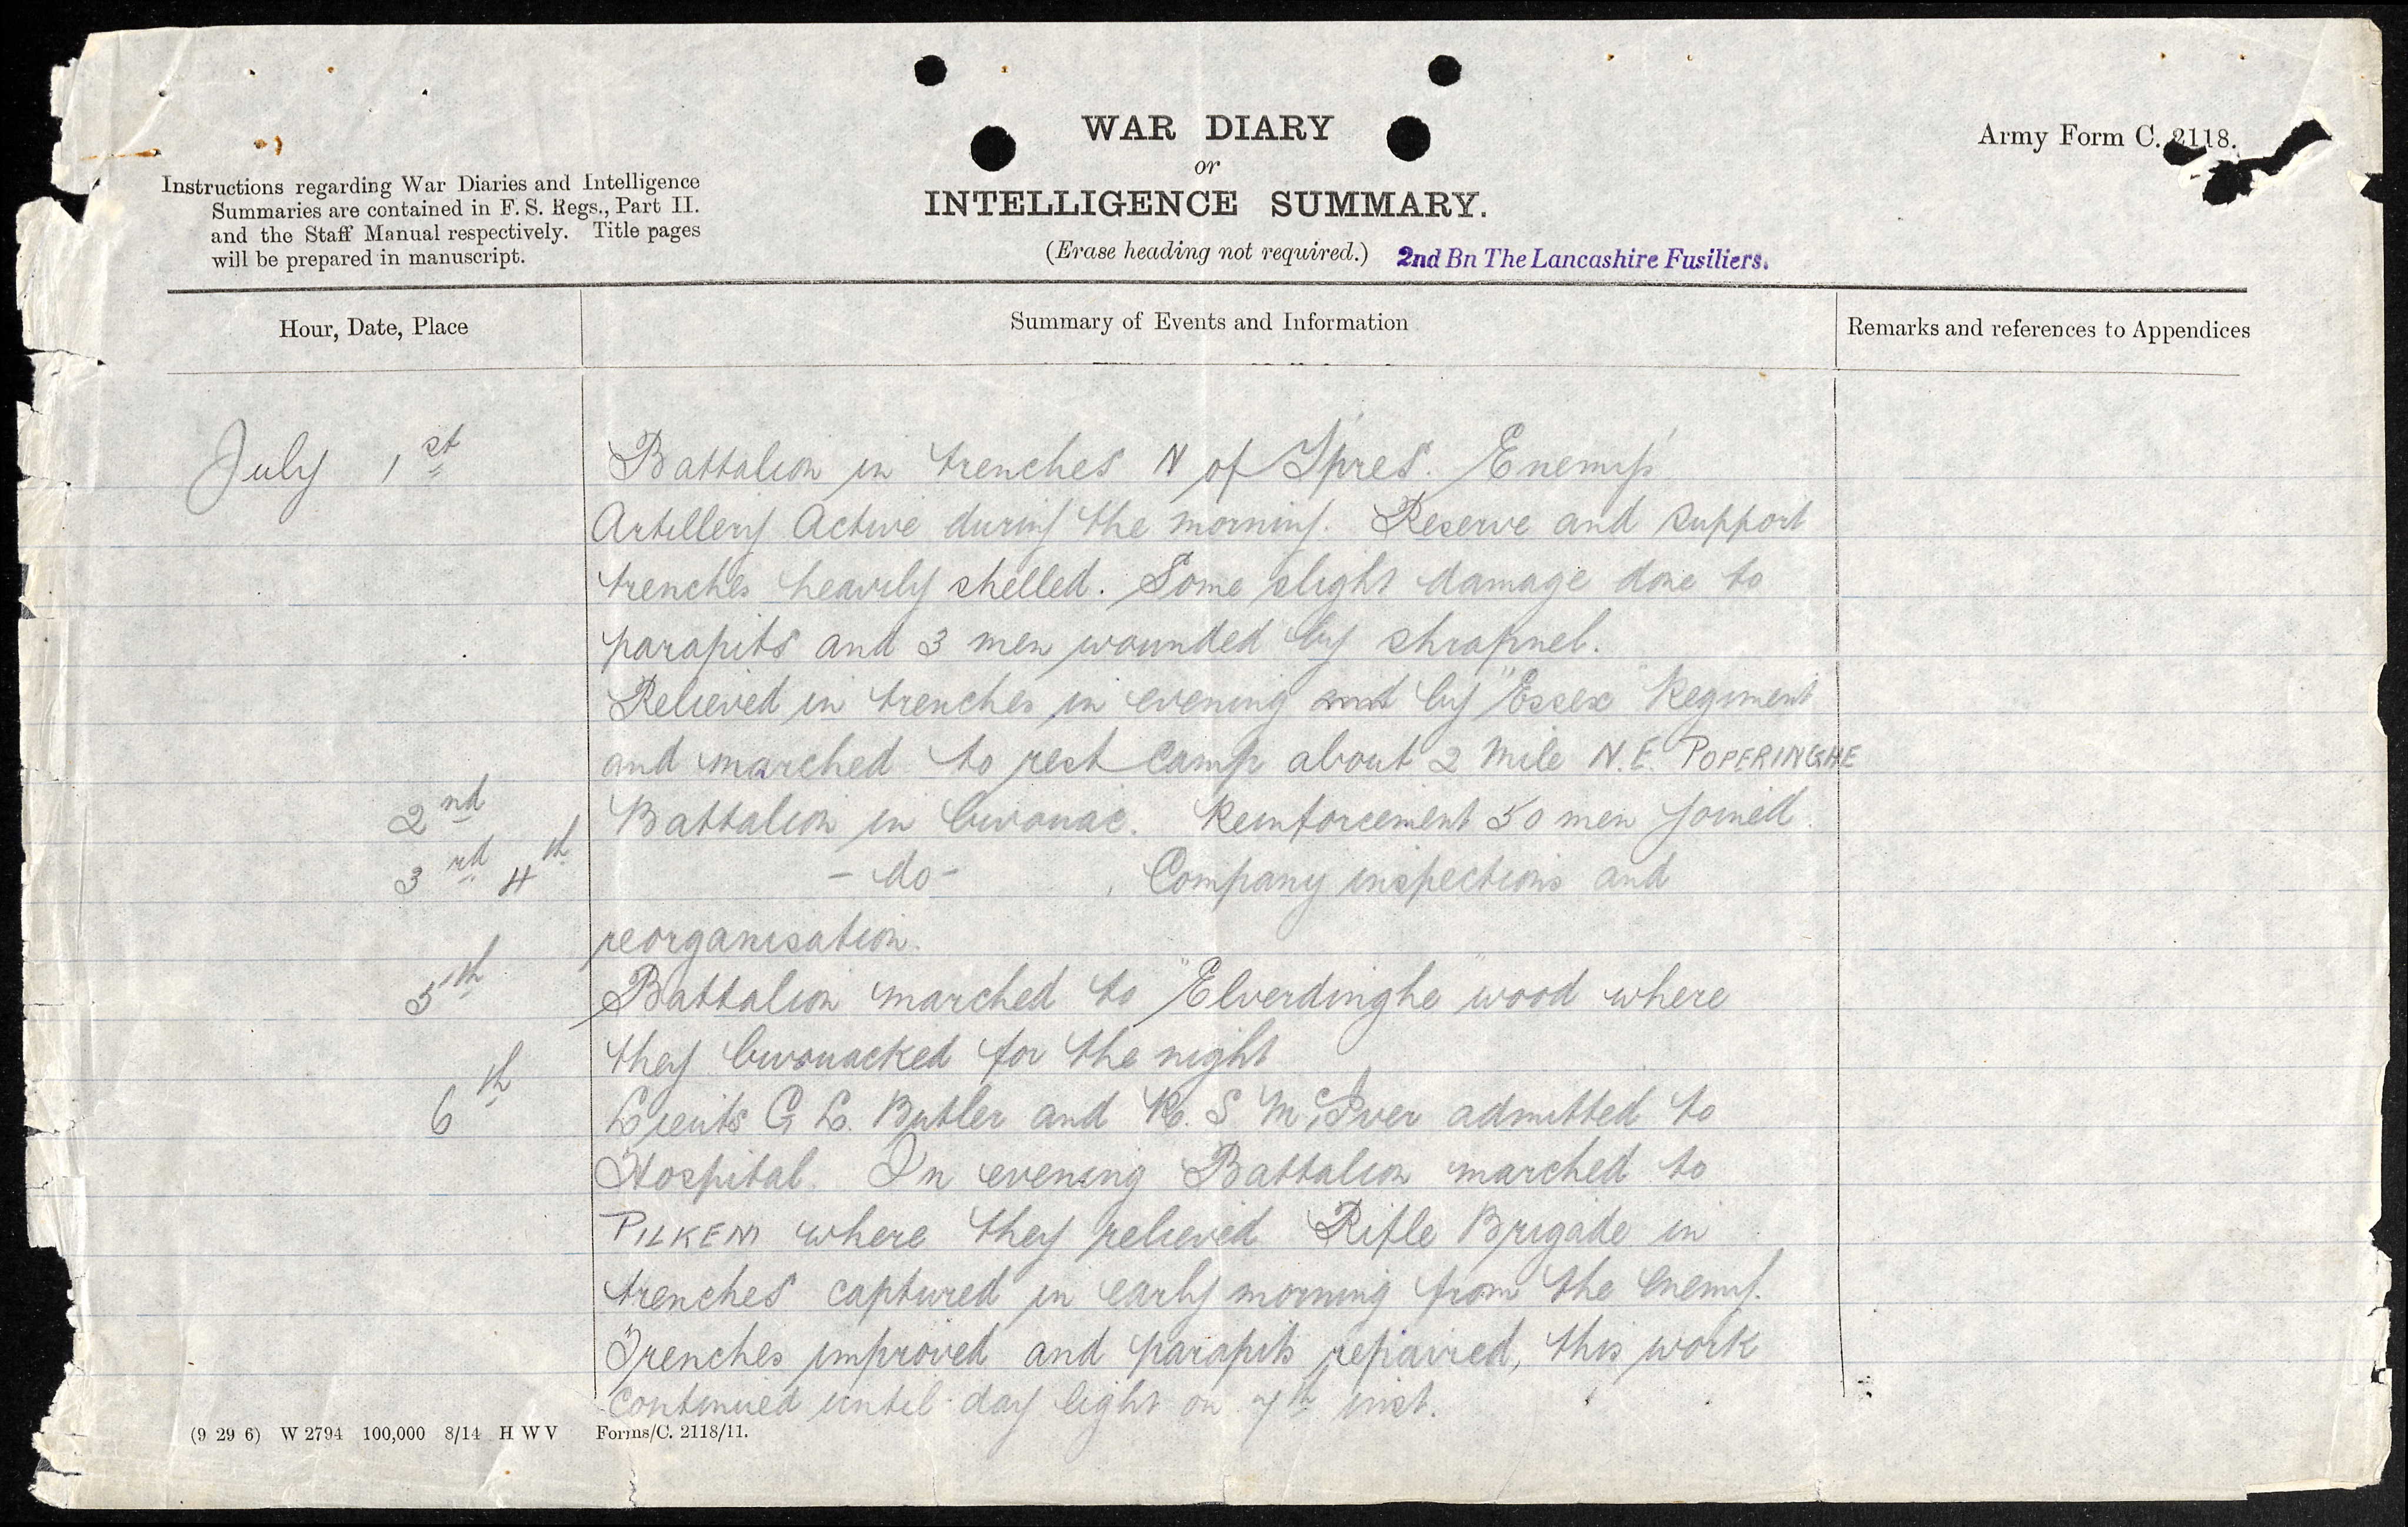 WAR DIARY
or
INTELLIGENCE SUMMARY.
(Erase heading not required.) 2nd Bn The Lancashire Fusiliers.
Army Form C. 2118.
Instructions regarding War Diaries and Intelligence
Summaries are contained in F. S. Regs., Part II.
and the Staff Manual respectively. Title pages
will be prepared in manuscript.
Hour, Date, Place
Summary of Events and Information
Remarks and references to Appendices
July 1st Battalion in trenches N of Ypres. Enemy's
Artillery Active during the morning. Reserve and support
trenches heavily shelled. Some slight damage done to
parapits and 3 men wounded by shrapnel.
Relieved in trenches in evening by "Essex" Regiment
and marched to rest camp about 2 mile N.E. POPERINGHE
2nd Battalion in bivouac. Reinforcement 50 men joined.
3rd 4th - do - , Company inspections and
reorganisation.
5th Battalion marched to "Elverdinghe" wood where
they bivouacked for the night
6th Lieuts G L. Butler and R. S McIver admitted to
Hospital. In evening Battalion marched to
PILKEM where they relieved Rifle Brigade in
trenches captured in early morning from the enemy.
Trenches improved and parapits repaired, this work
continued until day light on 7th inst.
(9 29 6) W 2794 100,000 8/14 H W V Forms/C. 2118/11.